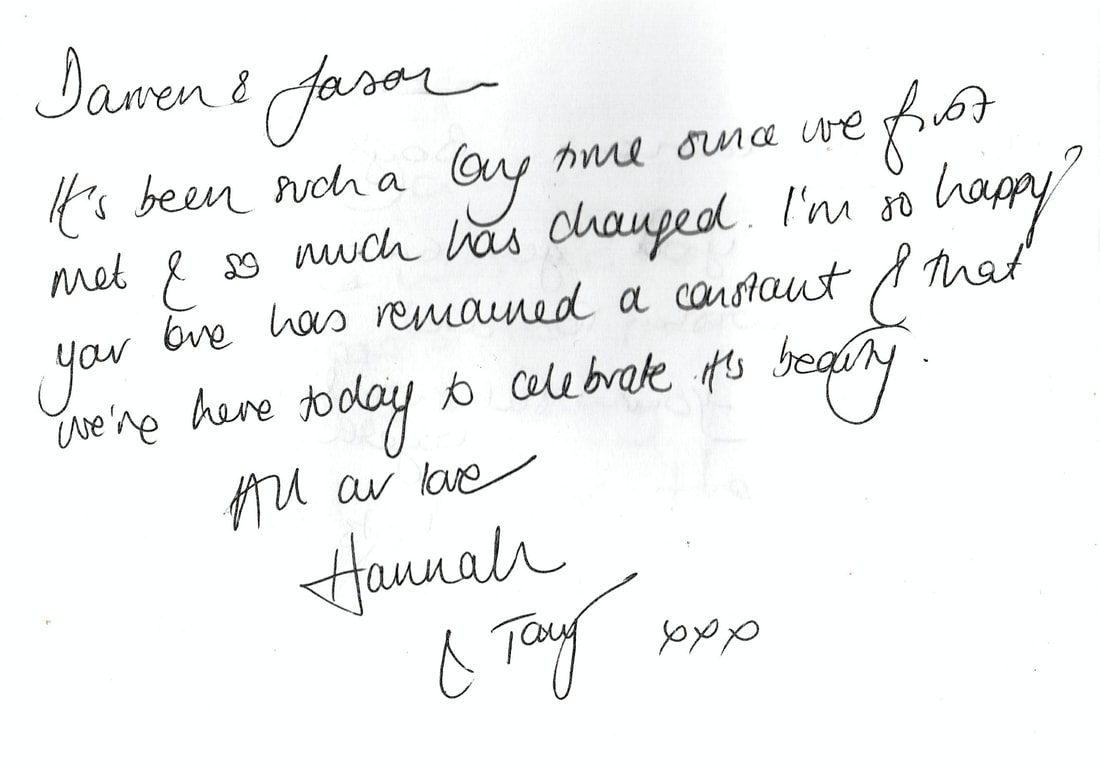 Darren & Jason
It's been such a long time since we first
met & so much has changed. I'm so happy
your love has remained a constant & that
we're here today to celebrate it's beauty.
All our love
Hannah
& Tony xxx